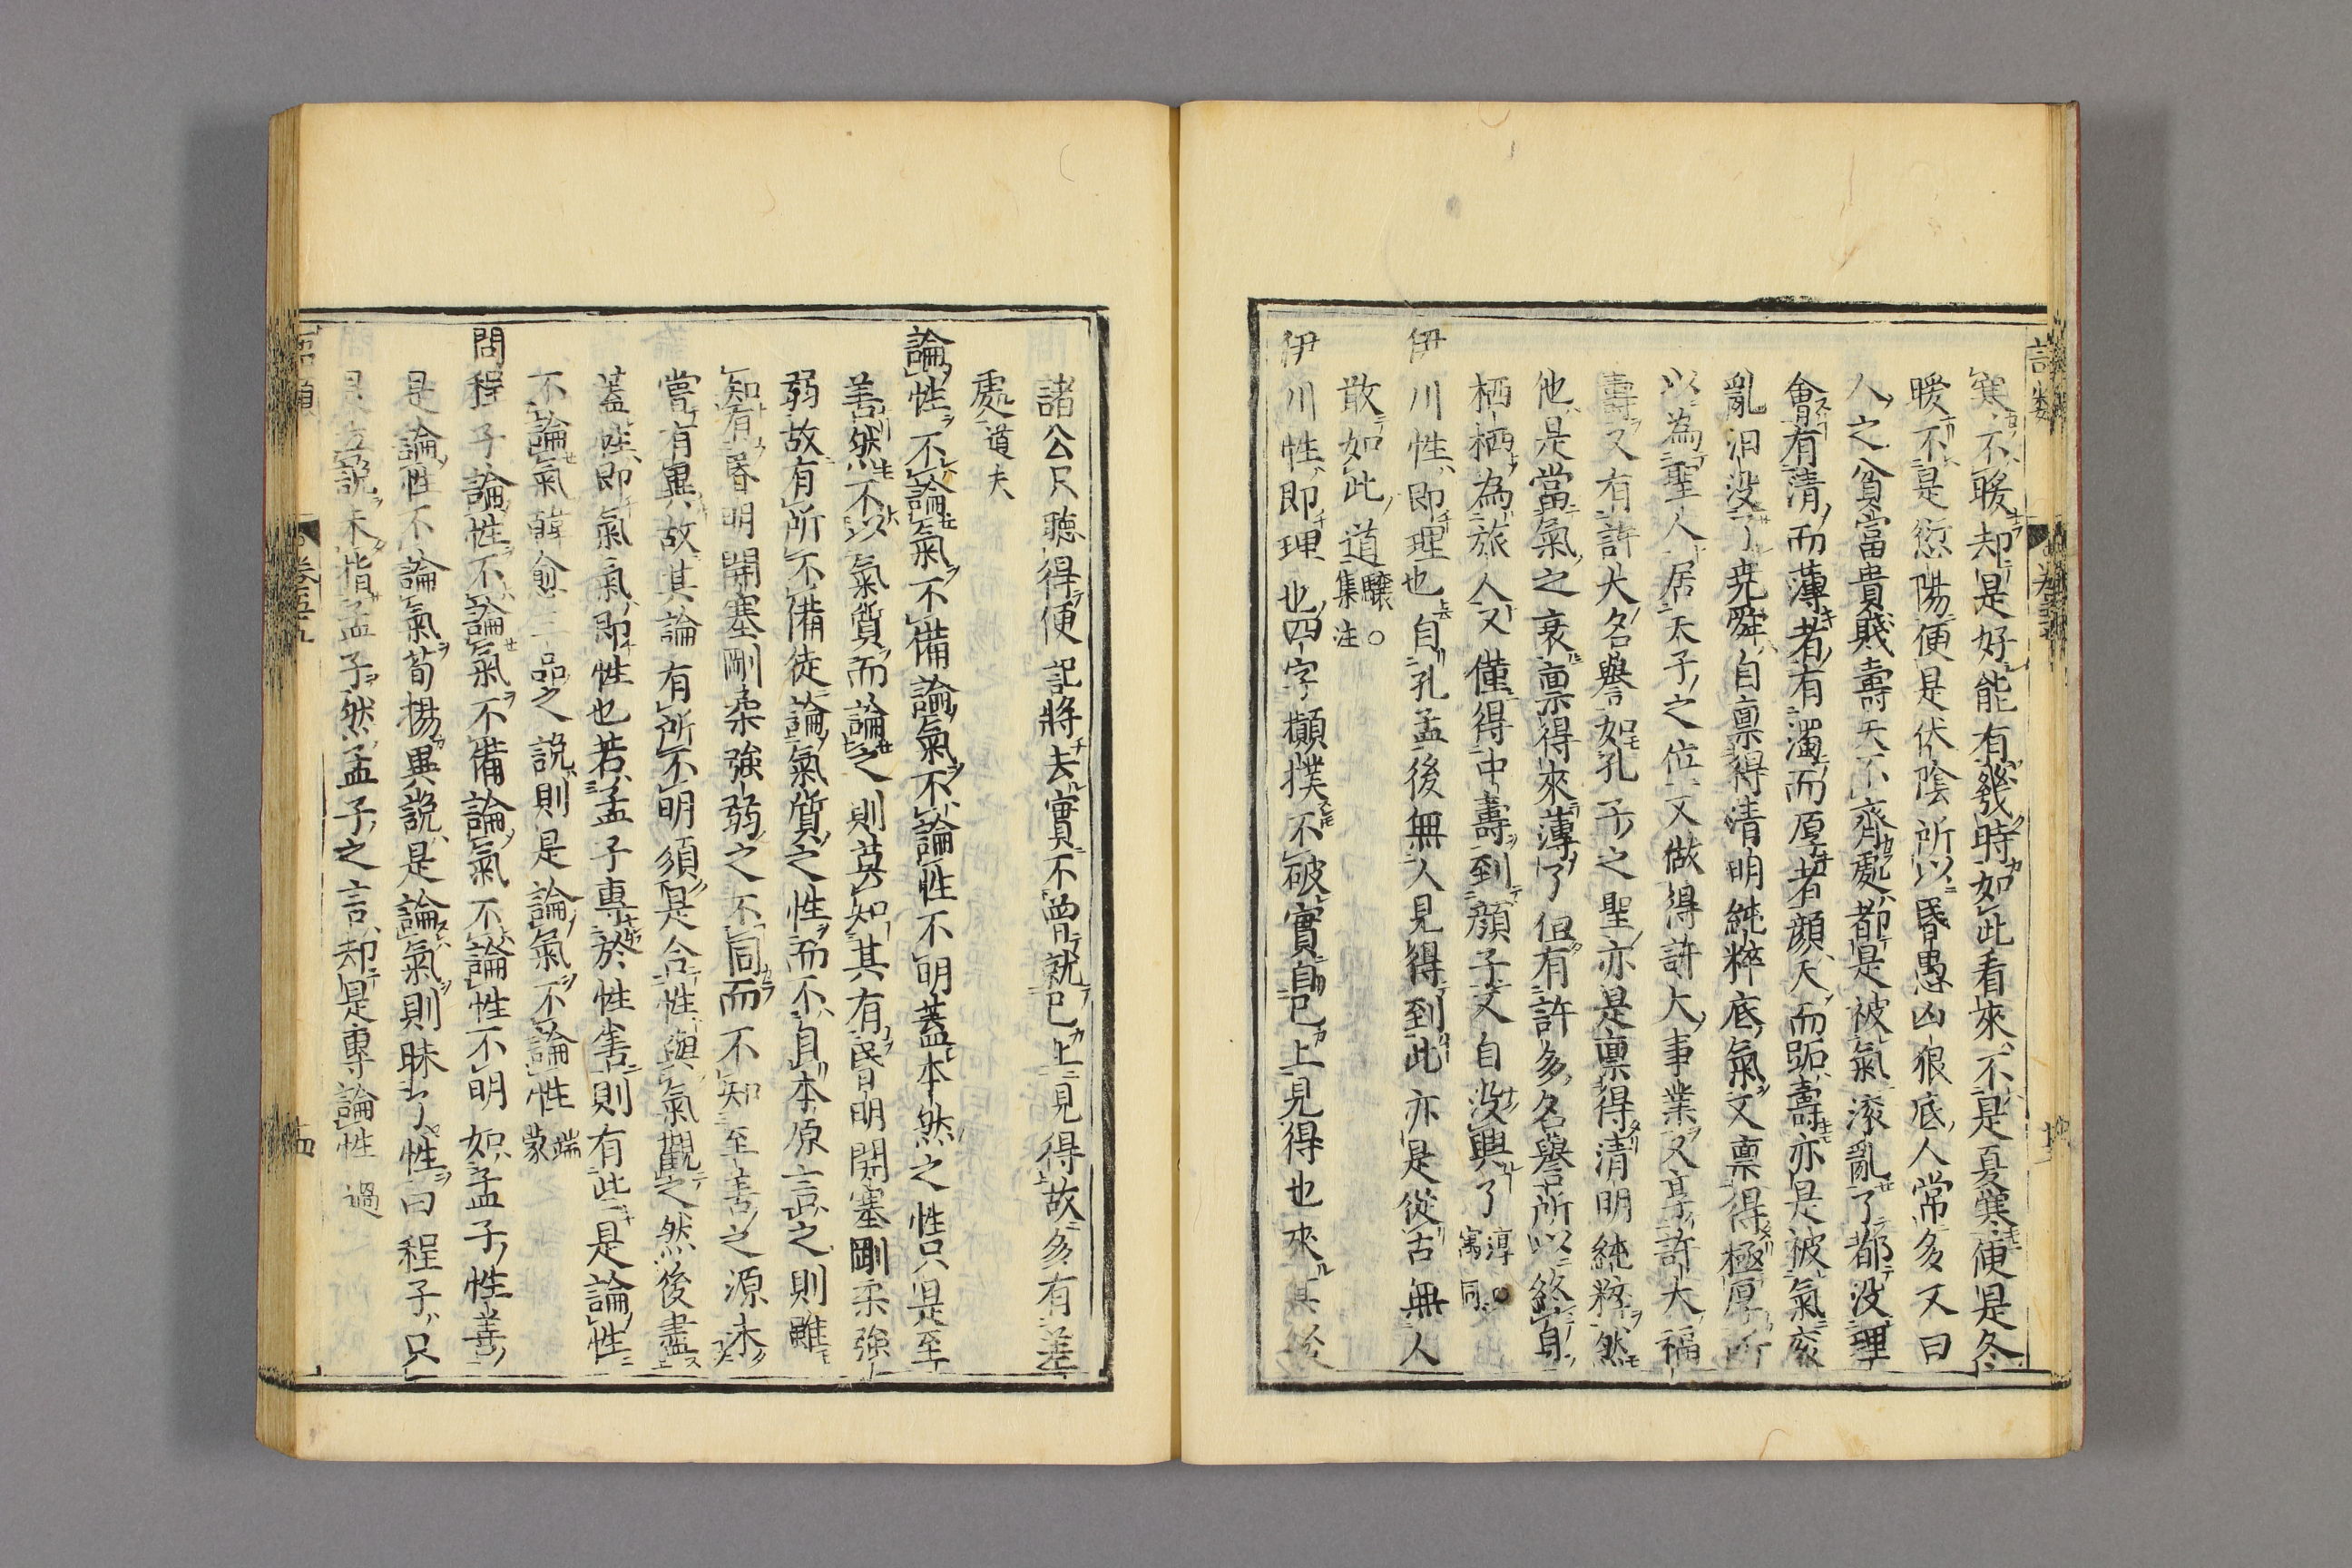 寒不暖却是好能有幾時如此看來不是夏寒便是冬
暖不是愆陽便是伏陰所以昏愚凶狠底人常多又曰
人之貧富貴賤壽夭不齊處都是被氣滚亂了都没理
會有清而薄者有濁而厚者顔夭而跖壽亦是被氣亥
亂汨没了尭舜自禀得清明純粹底氣又禀得極厚所
以為聖人居天子之位又做得許大事業又享許大福
壽又有許大名譽如孔子之聖亦是禀得清明純粹然
他是當氣之衰禀得來薄了但有許多名譽所以終身
栖栖為旅人又僅得中壽到顔子又自没興了淳○寓同
伊川性即理也自孔孟後無人見得到此亦是從古無人
敢如此道驤○集注
伊川性即理也四字攧撲不破實自己上見得也來其後
諸公只聴得便記將去實不曽就己上見得故多有差
處道夫
論性不論氣不備論氣不論性不明蓋本然之性只是至
善然不以氣質而論之則莫知其有昏明開塞剛柔強
弱故有所不備徒論氣質之性而不自本原言之則雖
知有昏明開塞剛柔強弱之不同而不知至善之源未
嘗有異故其論有所不明須是合性與氣觀之然後盡
蓋性即氣氣即性也若孟子專於性善則有些是論性
不論氣韓愈三品之說則是論氣不論性端蒙
問程子論性不論氣不備論氣不論性不明如孟子性善
是論性不論氣荀揚異說是論氣則昧了性曰程子只
是立說未指孟子然孟子之言却是專論性過